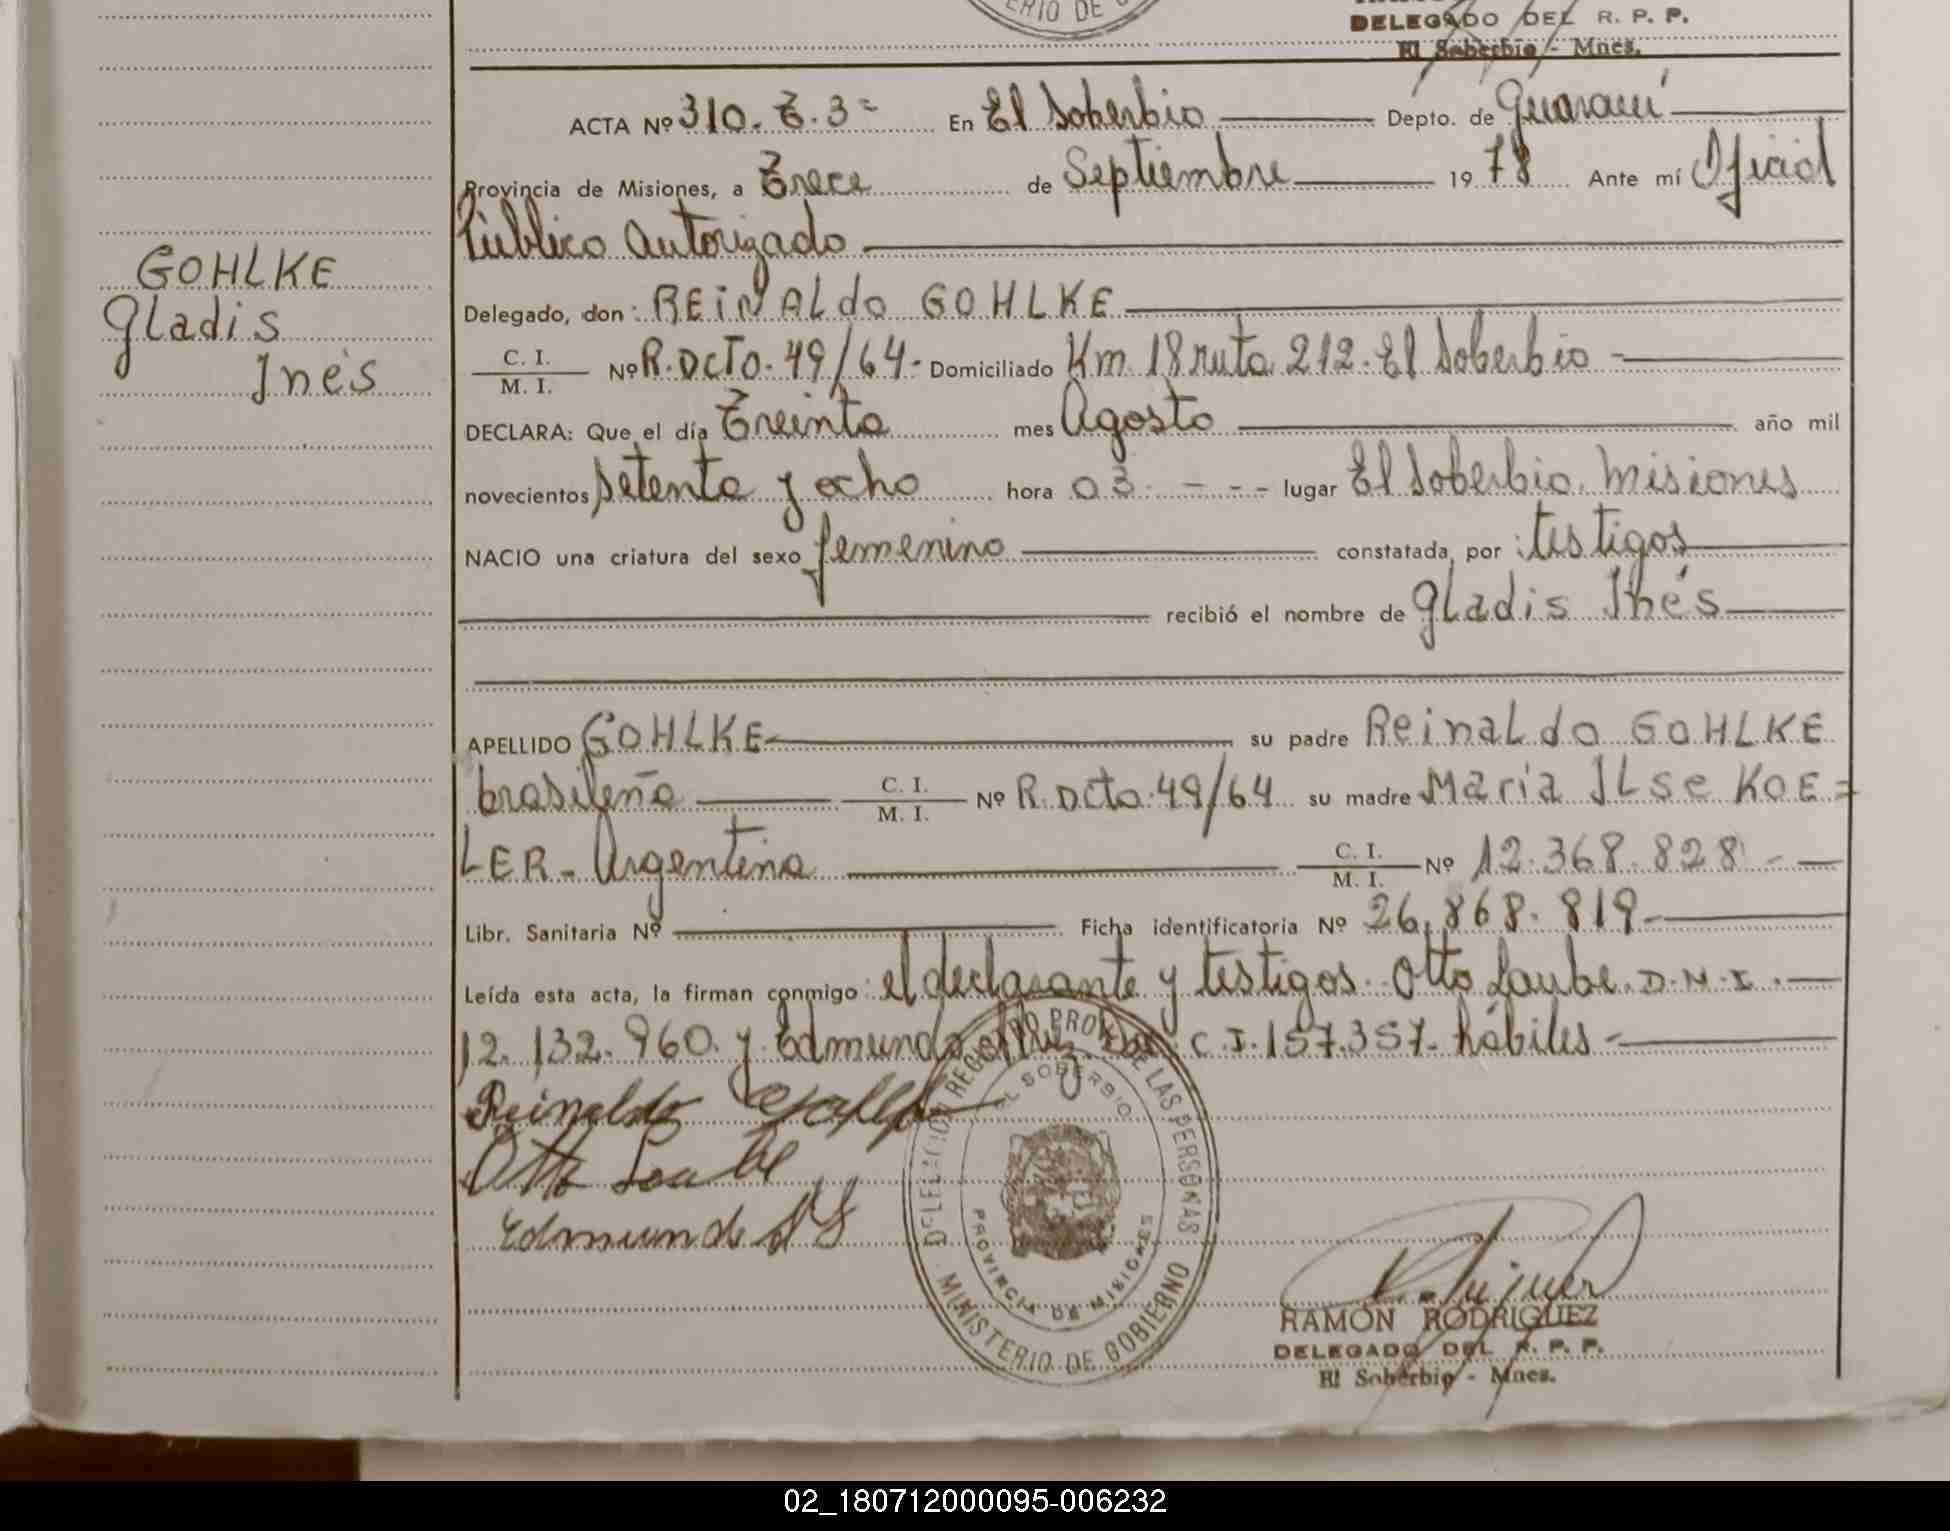 DELEGADO DEL R. P. P.
El Soberbio - Mnes.
ACTA Nº 310. T. 3= En El Soberbio Depto. de Guaraní
Provincia de Misiones, a Trece de Septiembre 1978 Ante mí Oficial
Público Autorizado
GOHLKE
Gladis
Inés
Delegado, don: REINALdo GOHLKE
C. I.
M. I.
Nº R. Dcto. 49/64- Domiciliado Km 18 ruta 212. El Soberbio -
DECLARA: Que el día Treinta mes Agosto año mil
novecientos setenta y ocho hora 03 - - - lugar El Soberbio. Misiones
NACIO una criatura del sexo femenino constatada por : testigos
recibió el nombre de Gladis Inés
APELLIDO GOHLKE su padre Reinaldo GOHLKE
brasileño C. I. M. I. Nº R. Dcto. 49/64 su madre Maria ILse KOE=
LER - Argentina C. I. M. I. Nº 12.368.828 -
Libr. Sanitaria Nº Ficha identificatoria Nº 26.868.819-
Leída esta acta, la firman conmigo: el declarante y testigos. Otto Laube. D.N.I.
12.132.960. y Edmundo C.I. 157.357. hábiles -
Reinaldo Gohlke
Otto Laube
Edmundo
DELEGACION REGISTRO PROV. DE LAS PERSONAS
EL SOBERBIO
PROVINCIA DE MISIONES
MINISTERIO DE GOBIERNO
RAMON RODRIGUEZ
DELEGADO DEL R. P. P.
El Soberbio - Mnes.
02_180712000095-006232